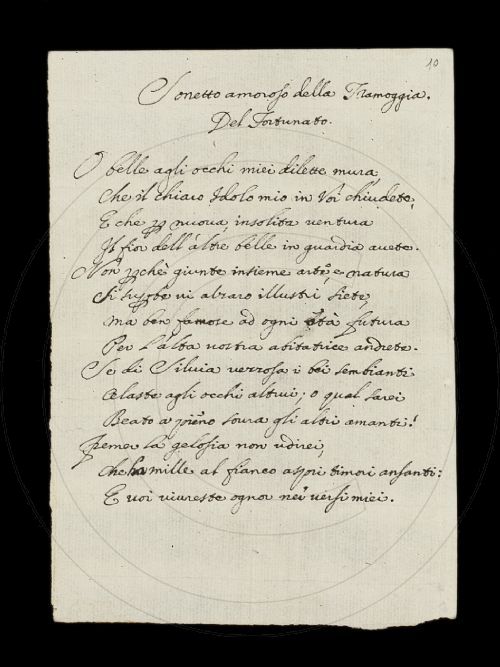 10
Sonetto amoroso della Tramoggia.
Del Fortunato.
O belle agli occhi miei dilette mura,
Che il chiaro Idolo mio in Voi chiudete,
E che p nuova, insolita ventura
Il fior dell'altre belle in guardia avete.
Non pche giunte insieme arte, e natura
Si v'alzaro illustri siete,
Ma ben famose ad ogni età futura
Per l'alta vostra abitatrice andrete.
Se di Silvia vezzosa i bei sembianti
Celaste agli occhi altrui; o qual sarei
Beato a pieno sovra gli altri amanti!
Fremer la gelosia non udirei,
Che ha mille al fianco aspri timori ansanti:
E voi vivreste ognor nei versi miei.